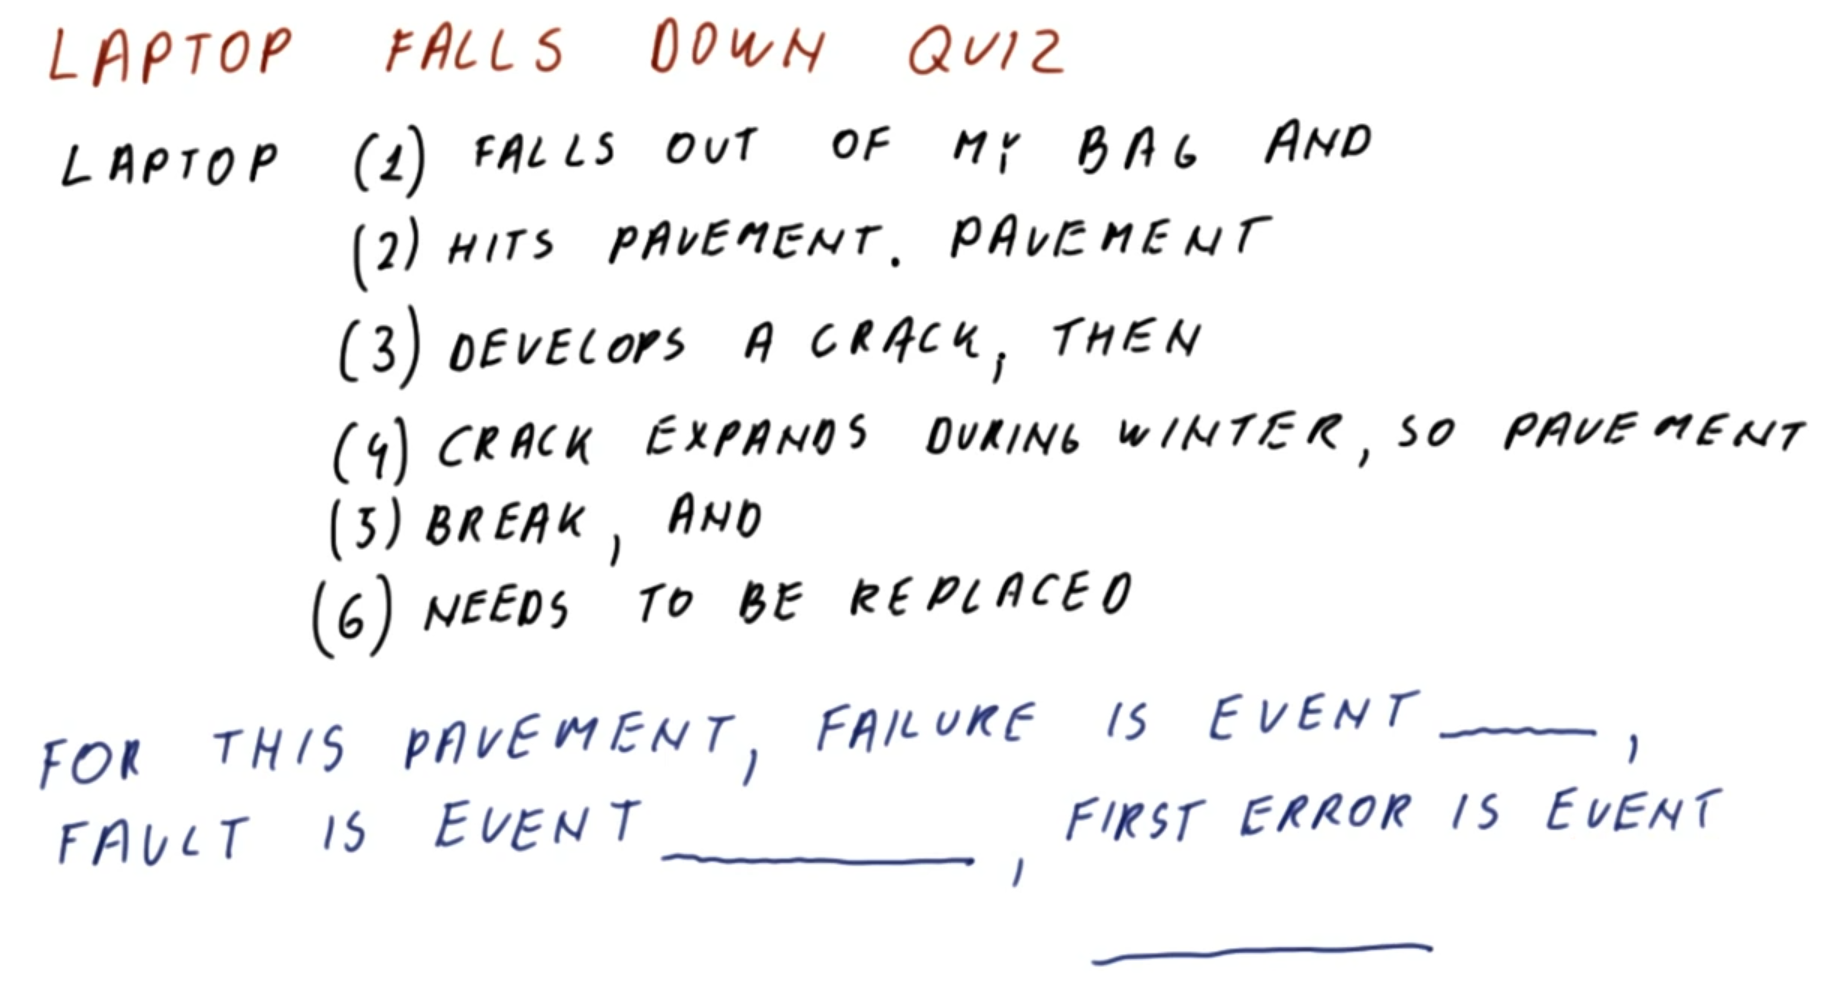 LAPTOP FALLS DOWN QUIZ
LAPTOP (1) FALLS OUT OF MY BAG AND
(2) HITS PAVEMENT. PAVEMENT
(3) DEVELOPS A CRACK, THEN
(4) CRACK EXPANDS DURING WINTER, SO PAVEMENT
(5) BREAK, AND
(6) NEEDS TO BE REPLACED
FOR THIS PAVEMENT, FAILURE IS EVENT ____,
FAULT IS EVENT ________, FIRST ERROR IS EVENT
________